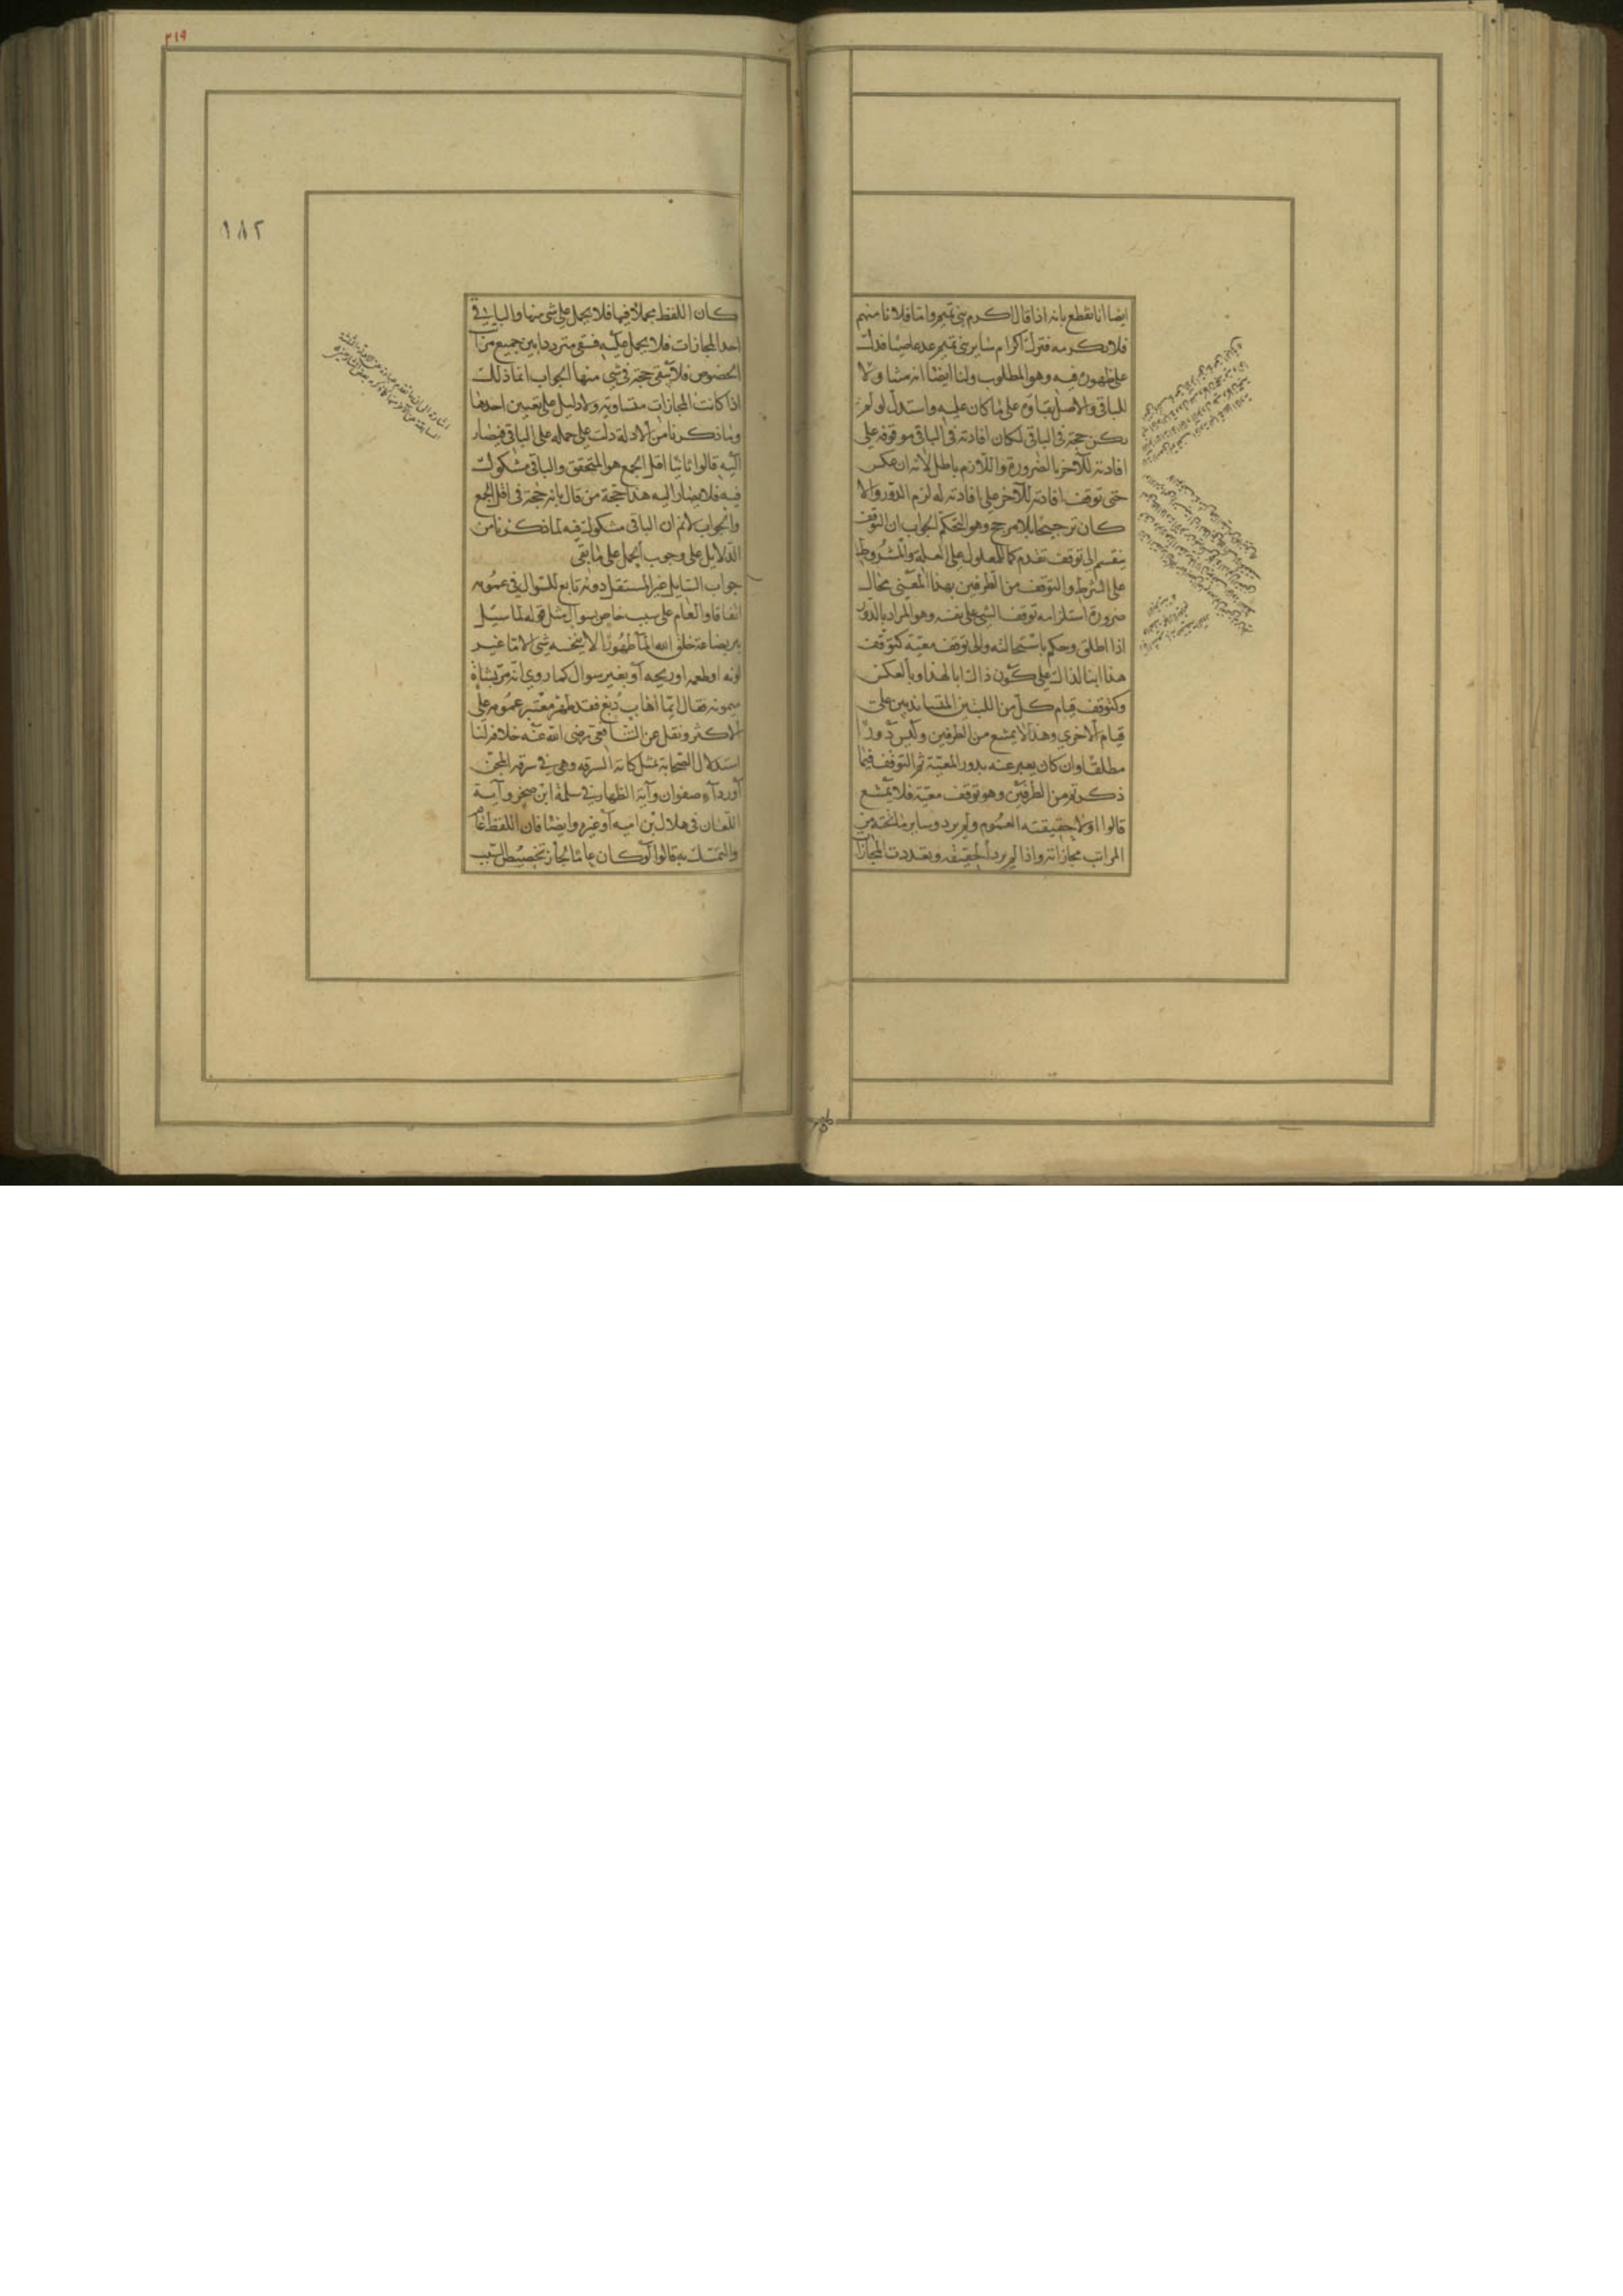 ايضا انا نقطع بانه اذا قال اكرم بني تميم واما فلانا منهم
فلا تكرمه فترك اكرام ساير بني تميم عد عاصيا فدل
على ظهوره فيه وهو المطلوب ولنا ايضا انه متناولا
للباقي والاصل بقاؤه على ما كان عليه واستدل لو لم
يكن حجة في الباقي لكان افادته في الباقي موقوفة على
افادته للآخر بالضرورة واللازم باطل لانه ان عكس
حتى توقف افادته للآخر على افادته له لزم الدور والا
كان ترجيحا بلا مرجح وهو التحكم الجواب ان التوقف
ينقسم الى توقف تقدم كما للمعلول على العلة والمشروط
على الشرط والتوقف من الطرفين بهذا المعنى محال
ضرورة استلزامه توقف الشي على نفسه وهو المراد بالدور
اذا اطلق وحكم باستحالته والى توقف معية كتوقف
هذا ابنا لذاك على كون ذاك ابا لهذا وبالعكس
وكتوقف قيام كل من اللبنتين المتساندتين على
قيام الاخرى وهذا لا يمتنع من الطرفين وليس دورا
مطلقا وان كان يعبر عنه بدور المعية ثم التوقف فيما
ذكرتم من الطرفين وهو توقف معية فلا يمتنع
قالوا اولا حقيقته العموم ولم يرد وساير ما تحته من
المراتب مجازاته واذا لم يرد الحقيقة وتعددت المجازات
٣١٩
١٨٢
كان اللفظ مجملا فيها فلا يحمل على شي منها والباقي
احد المجازات فلا يحمل عليه فبقي مترددا بين جميع مراتب
الخصوص فلا يبقى حجة في شي منها الجواب انما ذلك
اذا كانت المجازات متساوية ولا دليل على تعيين احدها
وما ذكرنا من الادلة دلت على حمله على الباقي فيصار
اليه قالوا ثانيا اقل الجمع هو المتحقق والباقي مشكوك
فيه فلا يصار اليه هذا حجة من قال بانه حجة في اقل الجمع
والجواب لانم ان الباقي مشكوك فيه لما ذكرنا من
الدلايل على وجوب الحمل على ما بقي
جواب السايل غير المستقل دونه تابع للسوال في عمومه
اتفاقا والعام على سبب خاص بسوال مثل قوله لما سئل
بير بضاعة خلق الله الما طهورا لا ينجسه شي الا ما غير
لونه او طعمه او ريحه او بغير سوال كما روي انه مر بشاة
ميمونة فقال ايما اهاب دبغ فقد طهر معتبر عمومه على
الاكثر ونقل عن الشافعي رضى الله عنه خلافه لنا
استدلال الصحابة بمثل كاية السرقه وهي في سرقه المجن
او رداء صفوان وآية الظهار في سلمة ابن صخر وآية
اللعان في هلال بن اميه او غيره وايضا فان اللفظ عام
والتمسك به قالوا لو كان عاما لجاز تخصيص السبب